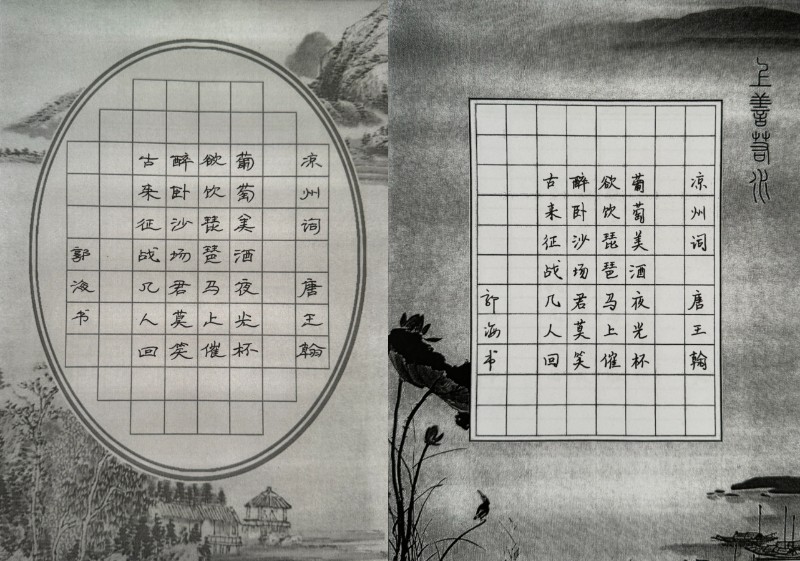 凉州词 唐王翰
葡萄美酒夜光杯
欲饮琵琶马上催
醉卧沙场君莫笑
古来征战几人回
郭海书
上善若水
凉州词 唐王翰
葡萄美酒夜光杯
欲饮琵琶马上催
醉卧沙场君莫笑
古来征战几人回
郭海书